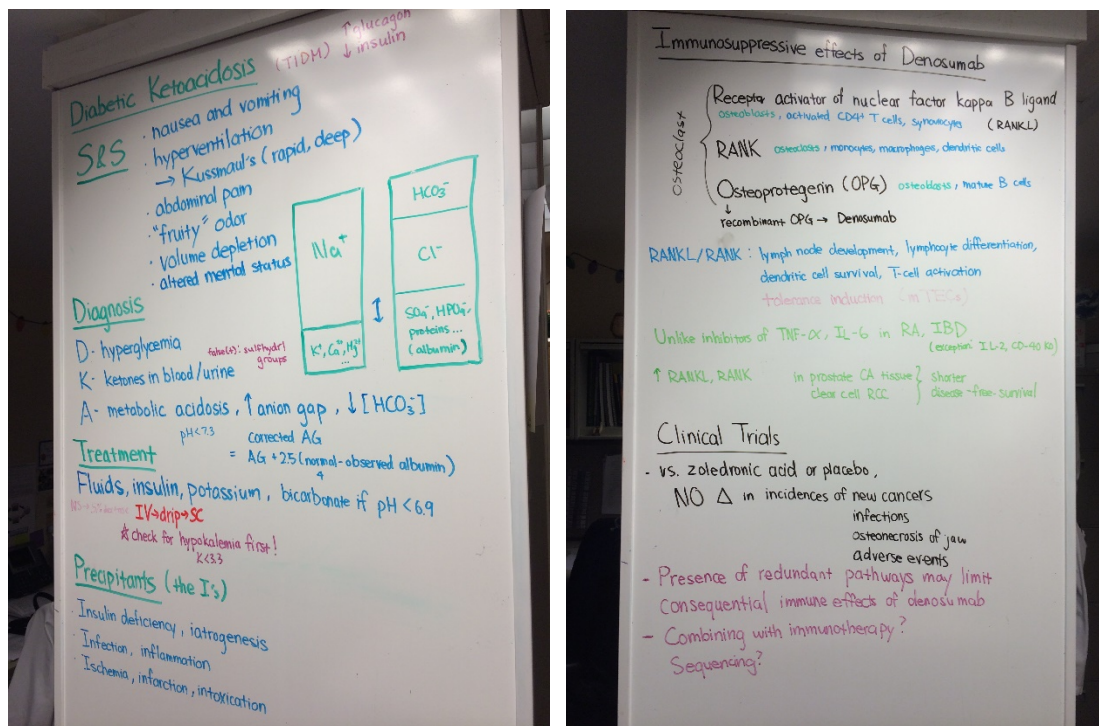 Diabetic Ketoacidosis (TIDM) ↑glucagon
↓ insulin
S&S
· nausea and vomiting
· hyperventilation
→ Kussmaul's (rapid, deep)
· abdominal pain
· "fruity" odor
· volume depletion
· altered mental status
Na⁺
K⁺, Ca²⁺, Mg²⁺
...
HCO₃⁻
Cl⁻
SO₄⁻, HPO₄⁻
proteins...
(albumin)
Diagnosis
D- hyperglycemia
K- ketones in blood/urine
false(+): sulfhydrl
groups
A- metabolic acidosis, ↑ anion gap, ↓ [HCO₃⁻]
pH<7.3
corrected AG
= AG + 2.5 (normal-observed albumin)
4
Treatment
Fluids, insulin, potassium, bicarbonate if pH < 6.9
IV→drip→SC
☆ check for hypokalemia first!
K<3.3
Precipitants (the I's)
· Insulin deficiency, iatrogenesis
· Infection, inflammation
· Ischemia, infarction, intoxication
Immunosuppressive effects of Denosumab
osteoclast
Receptor activator of nuclear factor kappa B ligand
osteoblasts, activated CD4+ T cells, synoviocytes (RANKL)
RANK osteoclasts, monocytes, macrophages, dendritic cells
Osteoprotegerin (OPG) osteoblasts, mature B cells
↓
recombinant OPG → Denosumab
RANKL/RANK: lymph node development, lymphocyte differentiation,
dendritic cell survival, T-cell activation
tolerance induction (mTECs)
Unlike inhibitors of TNF-α, IL-6 in RA, IBD
(exception: IL-2, CD-40 KO)
↑ RANKL, RANK in prostate CA tissue } shorter
clear cell RCC disease-free-survival
Clinical Trials
- vs. zoledronic acid or placebo,
NO Δ in incidences of new cancers
infections
osteonecrosis of jaw
adverse events
- Presence of redundant pathways may limit
consequential immune effects of denosumab
- Combining with immunotherapy?
Sequencing?